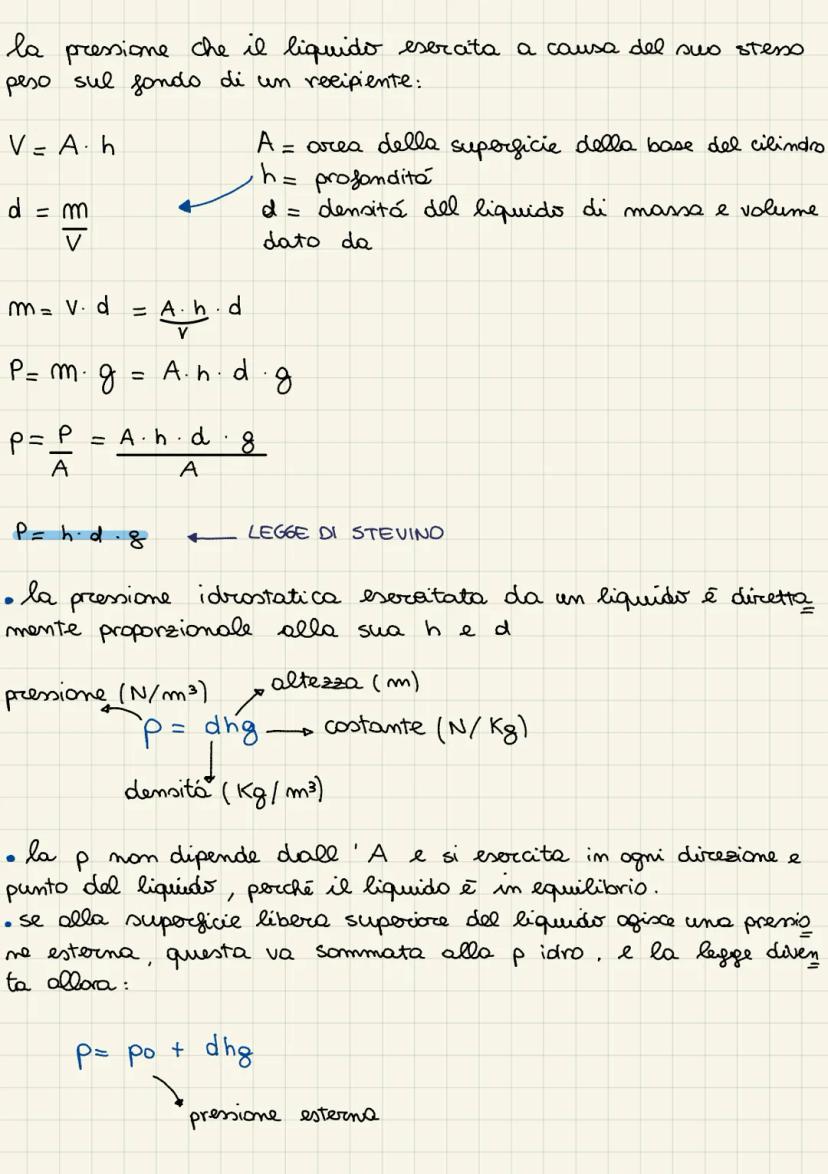 la pressione che il liquido esercita a causa del suo stesso
peso sul fondo di un recipiente:
V = A · h
A = area della superficie della base del cilindro
h = profondità
d = m
V
d = densità del liquido di massa e volume
dato da
m = V · d = A · h · d
V
P = m · g = A · h · d · g
p = P = A · h · d · g
A A
P = h · d · g ← LEGGE DI STEVINO
• la pressione idrostatica esercitata da un liquido è diretta
mente proporzionale alla sua h e d
pressione (N/m³) altezza (m)
p = dhg → costante (N/Kg)
densità (Kg/m³)
• la p non dipende dall'A e si esercita in ogni direzione e
punto del liquido, perché il liquido è in equilibrio.
• se alla superficie libera superiore del liquido agisce una pressio
ne esterna, questa va sommata alla p idro, e la legge diven
ta allora:
p = po + dhg
pressione esterna